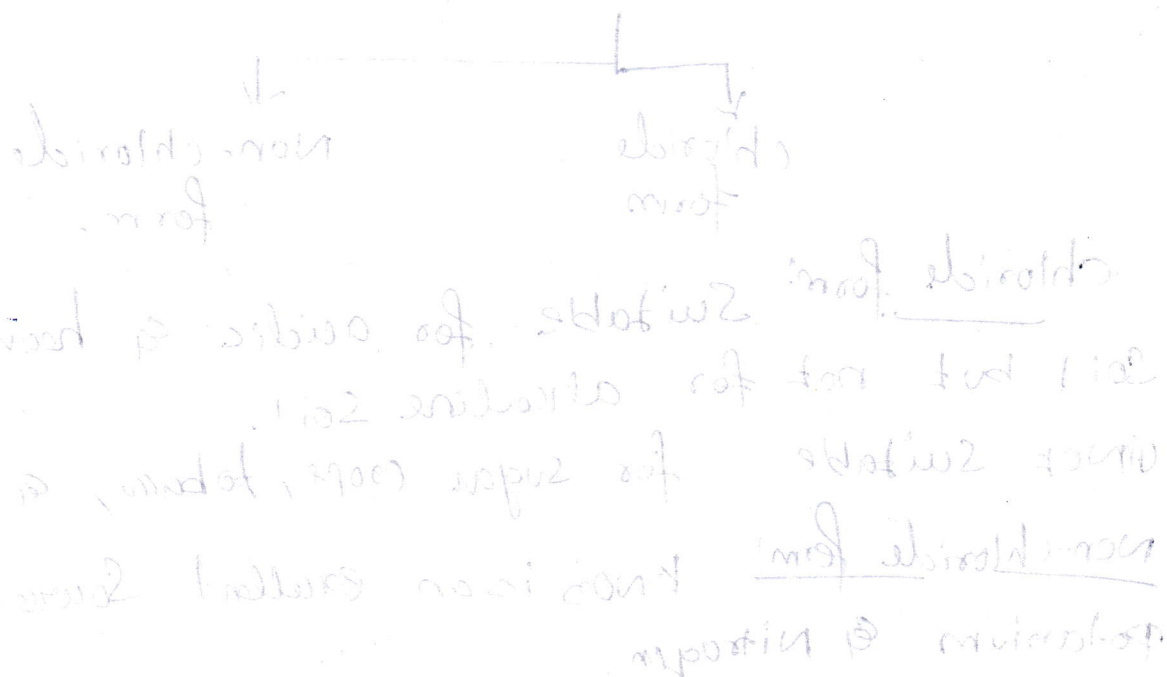 chloride form
Non-chloride form.
chloride form: Suitable for acidic &
Soil but not for alkaline soil.
suitable for sugar crops, tobacco, &
Non-chloride form: KNO3 is an excellent Source
& Nitrogen